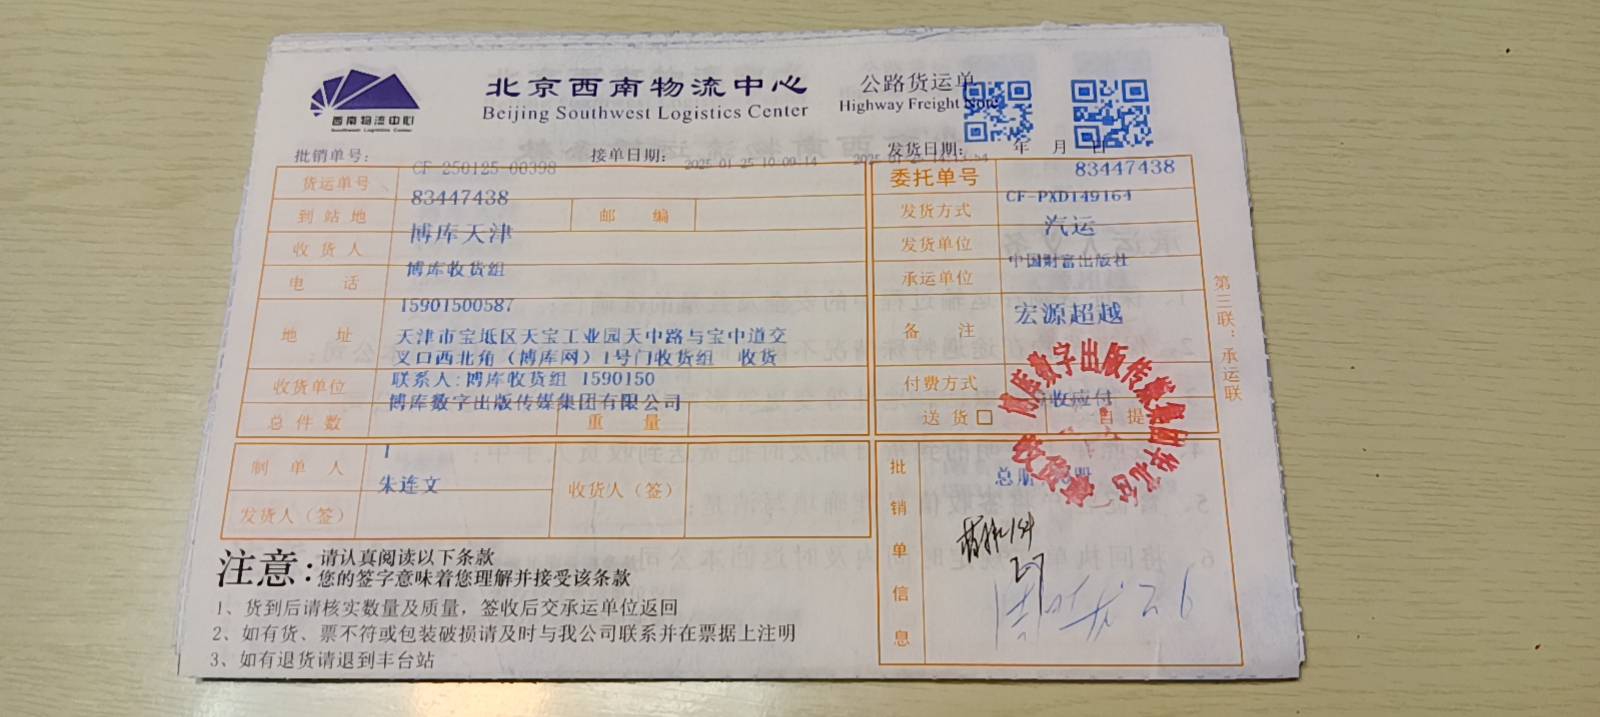 西南物流中心
Southwest Logistics Center
北京西南物流中心
Beijing Southwest Logistics Center
公路货运单
Highway Freight Note
批销单号:
CF-250125-00398
接单日期:
2025-01-25 10:09:14
发货日期:
年 月 日
货运单号
83447438
到站地
博库天津
邮 编
收货人
博库收货组
电 话
15901500587
地 址
天津市宝坻区天宝工业园天中路与宝中道交
叉口西北角（博库网）1号门收货组 收货
联系人:博库收货组 1590150
收货单位
博库数字出版传媒集团有限公司
总件数
1
重 量
制单人
朱连文
收货人（签）
发货人（签）
委托单号
83447438
CF-PXD149164
发货方式
汽运
发货单位
中国财富出版社
承运单位
宏源超越
备 注
付费方式
收应付
送 货□
自 提
批销单信息
总册
27
26
第三联：承运联
注意:
请认真阅读以下条款
您的签字意味着您理解并接受该条款
1、货到后请核实数量及质量，签收后交承运单位返回
2、如有货、票不符或包装破损请及时与我公司联系并在票据上注明
3、如有退货请退到丰台站